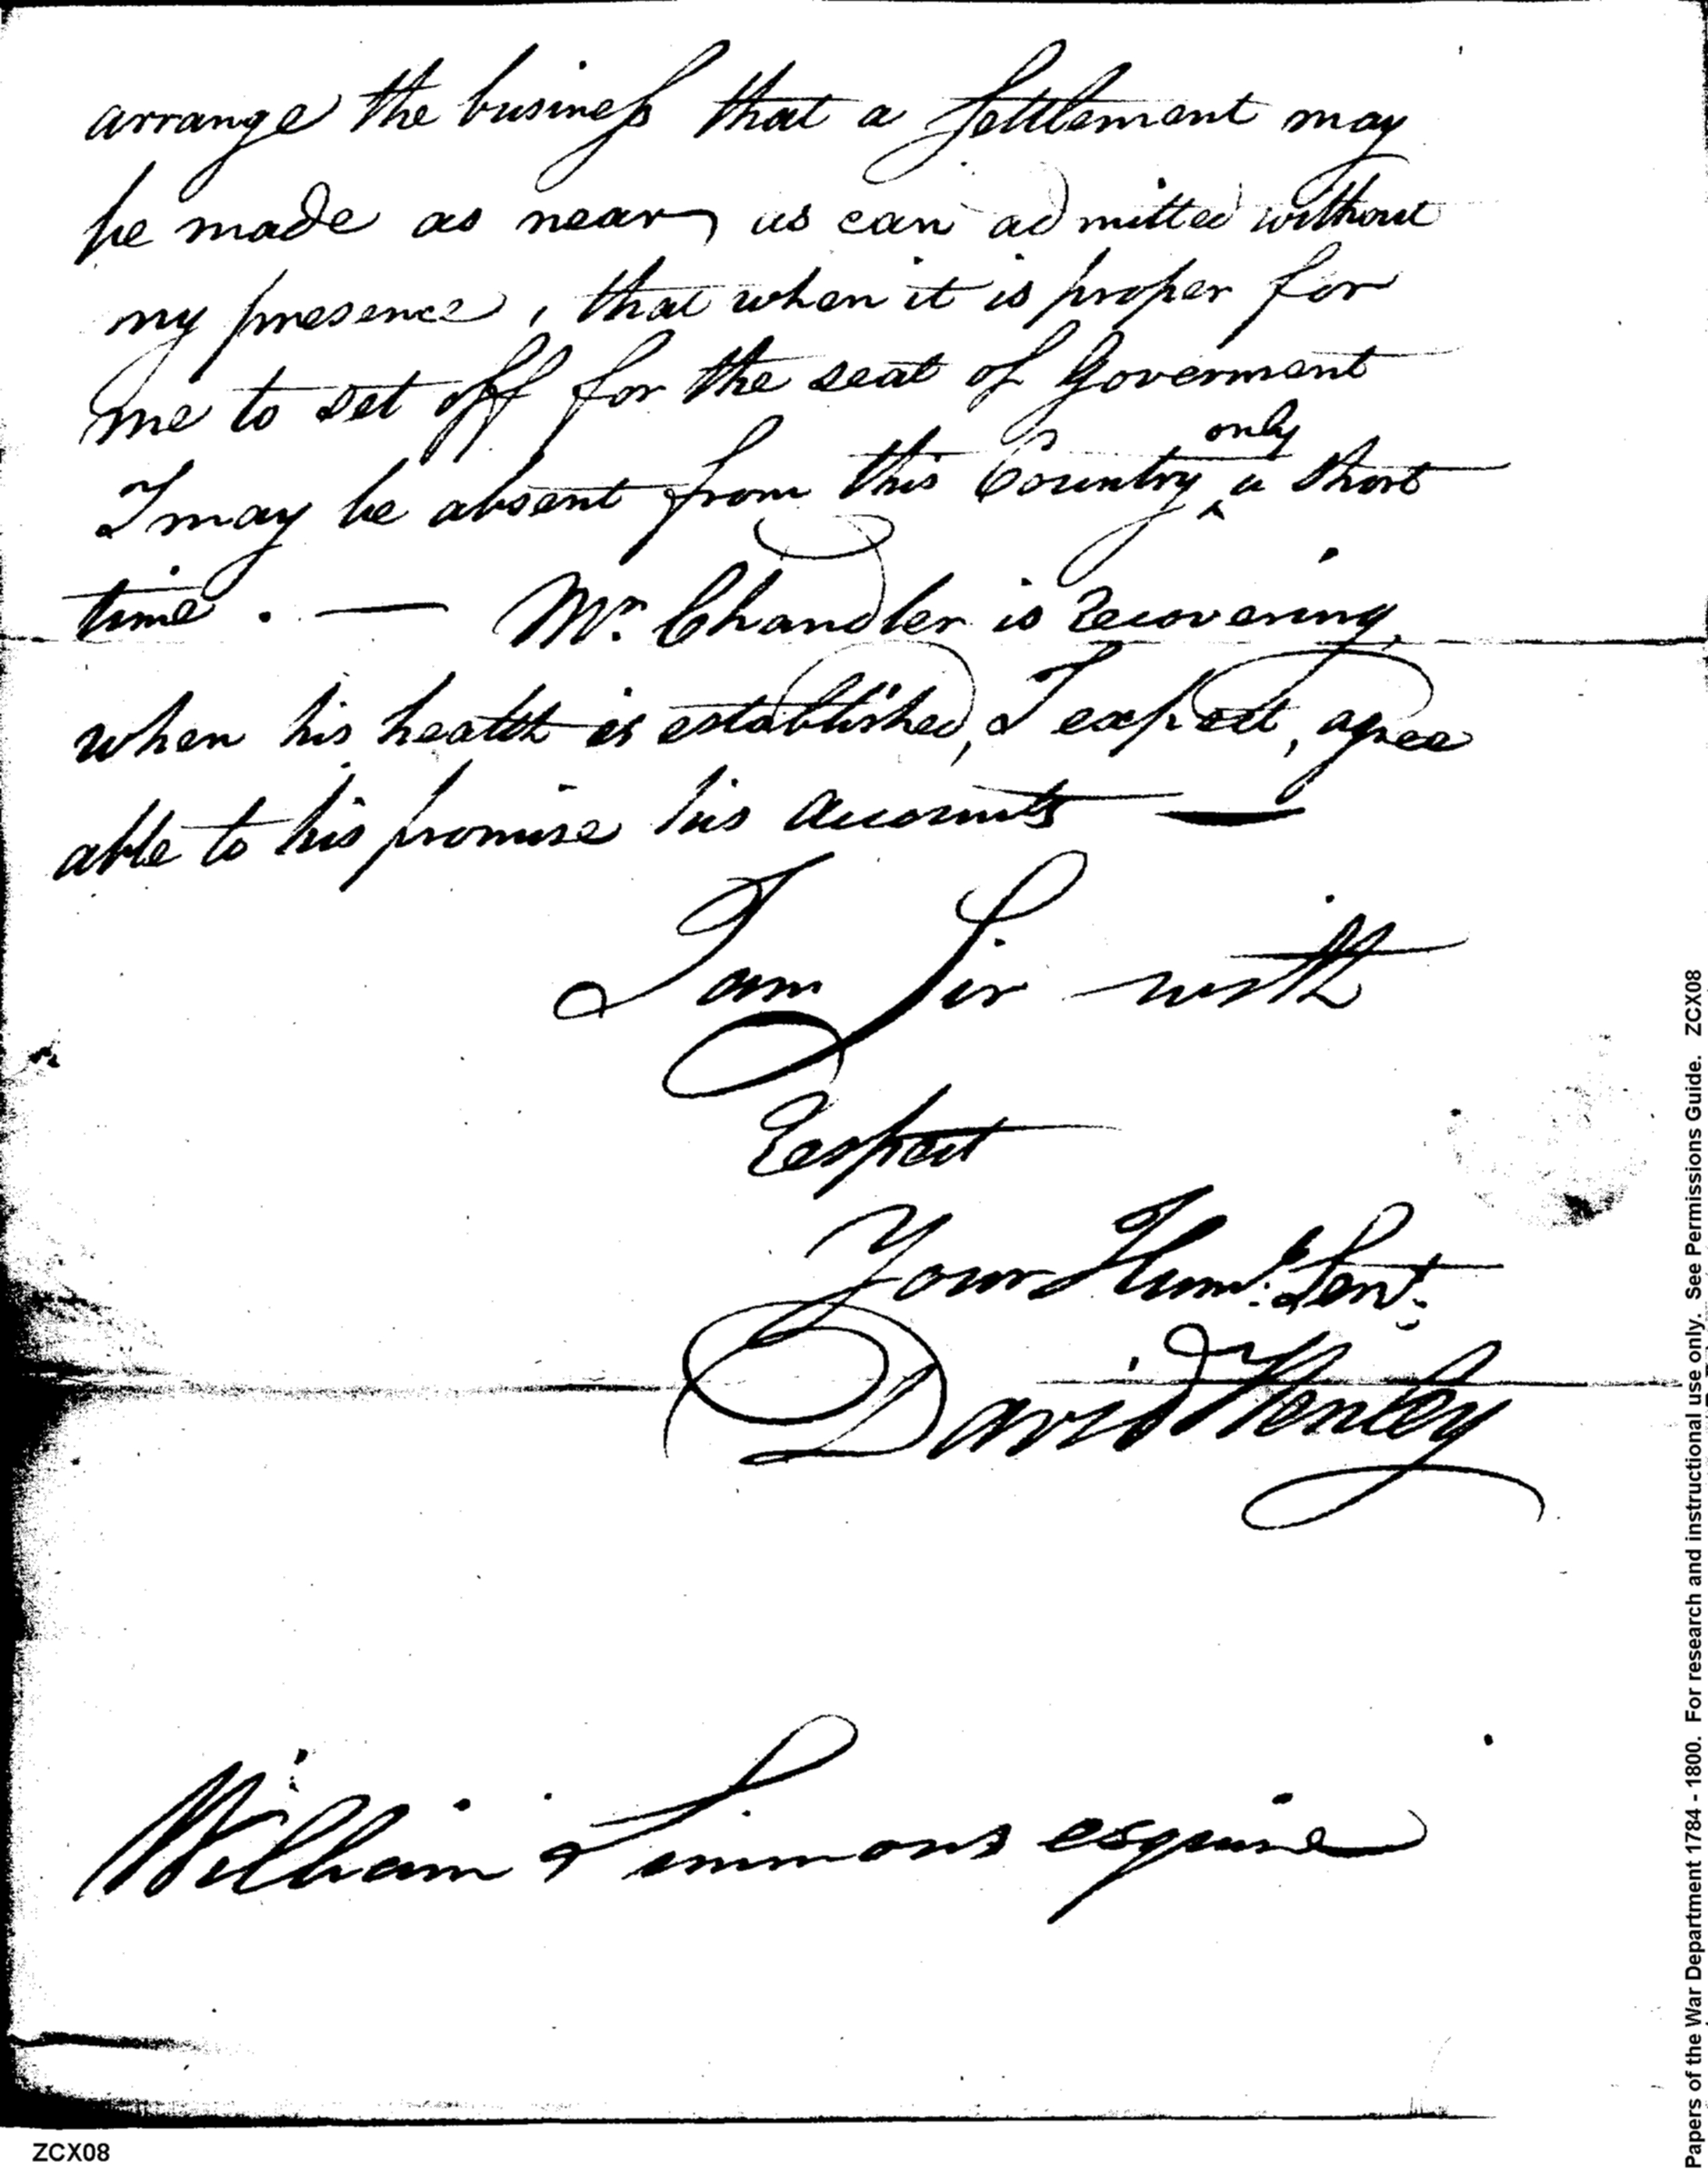 arrange the business that a Settlement may
be made as near as can admitted without
my presence, that when it is proper for
me to set off for the seat of Goverment
I may be absent from this Country only a short
time. — Mr. Chandler is recovering,
when his health is established, I expect, agree
able to his promise his accounts —
I am Sir with
respect
Your Humb. Servt.
David Henley
William Simmons esquire
ZCX08
Papers of the War Department 1784 - 1800. For research and instructional use only. See Permissions Guide. ZCX08